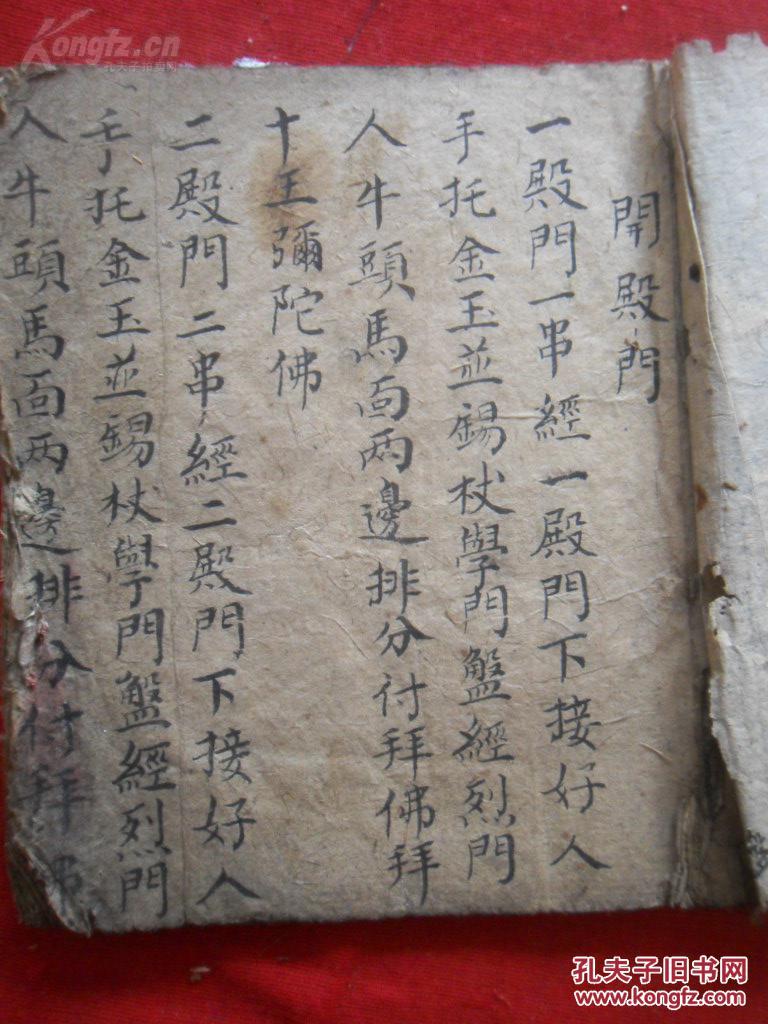 開殿門
一殿門一串經一殿門下接好人
手托金玉並錫杖學門盤經烈門
人牛頭馬面两邊排分付拜佛拜
十王彌陀佛
二殿門二串經二殿門下接好人
手托金玉並錫杖學門盤經烈門
人牛頭馬面两邊排分付拜佛
Kongfz.cn
孔夫子拍卖网
孔夫子旧书网
www.kongfz.com